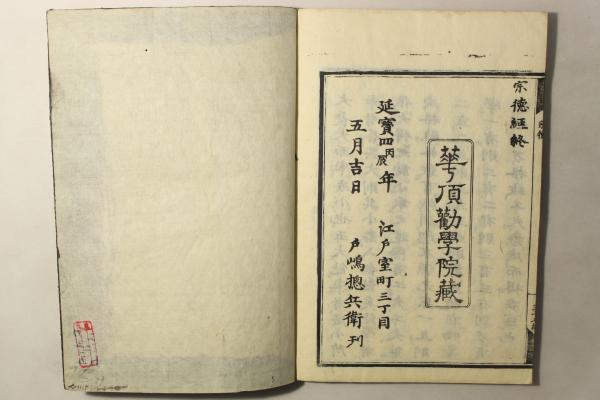 宗德經終
華頂勸學院藏
延寶四丙辰年 江戸室町三丁目
五月吉日 戸嶋摠兵衛刊